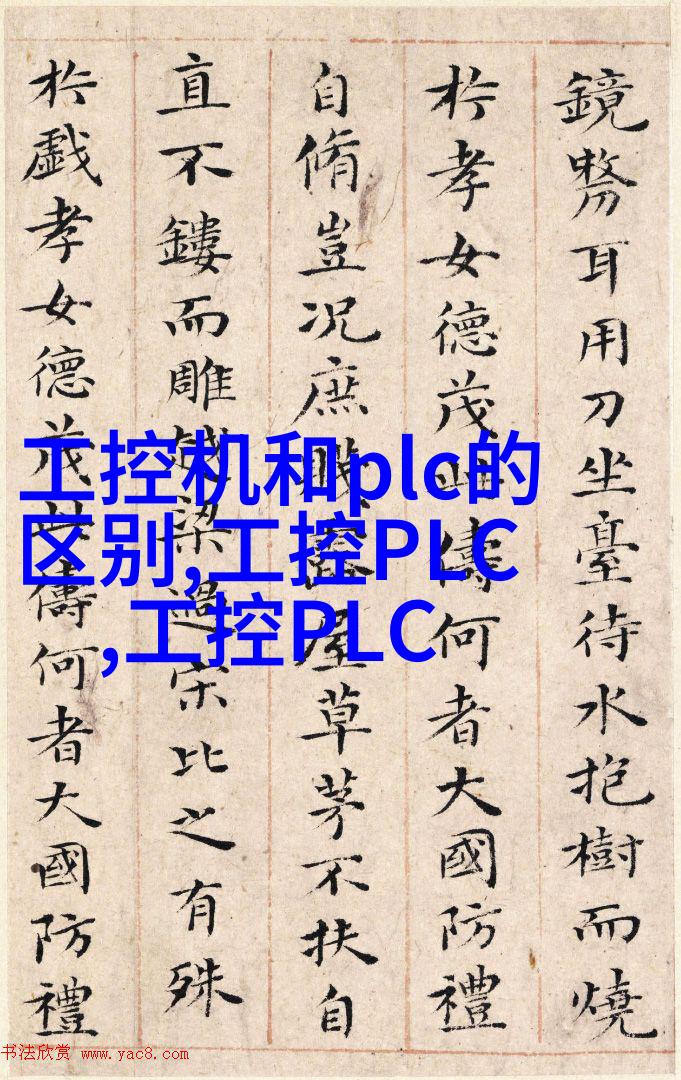 鏡剺耳用刀坐臺待水抱樹而燒
於孝女德茂此儔何者大國防禮
自脩豈況庶賤露屋草茅不扶自
直不鏤而雕越梁過宋比之有殊
於戲孝女德茂此儔何者大國防禮
工控机和plc的
区别,工控PLC
,工控PLC
书法欣赏 www.yac8.com